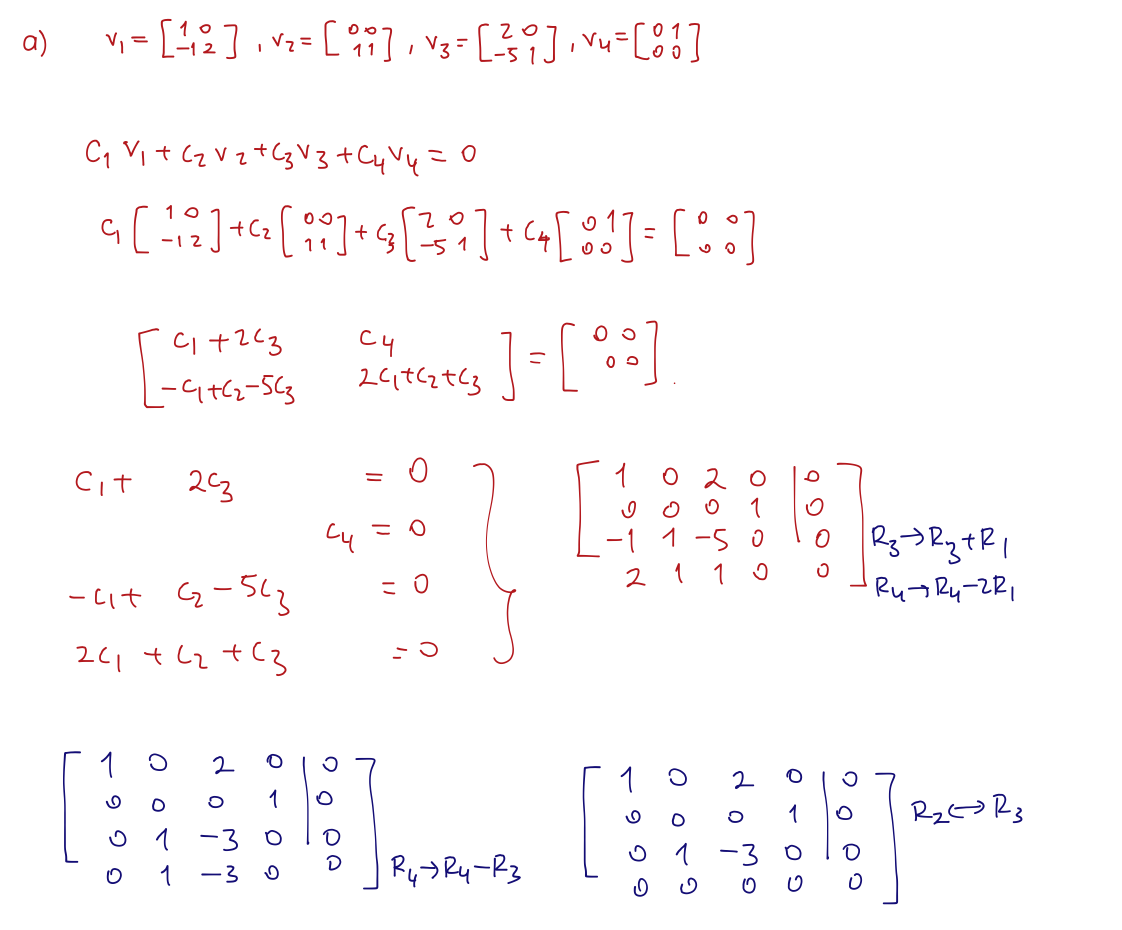 a) v₁ = [1 0; -1 2], v₂ = [0 0; 1 1], v₃ = [2 0; -5 1], v₄ = [0 1; 0 0]
C₁ v₁ + C₂ v₂ + C₃ v₃ + C₄ v₄ = 0
C₁ [1 0; -1 2] + C₂ [0 0; 1 1] + C₃ [2 0; -5 1] + C₄ [0 1; 0 0] = [0 0; 0 0]
[C₁ + 2C₃  C₄; -C₁ + C₂ - 5C₃  2C₁ + C₂ + C₃] = [0 0; 0 0].
C₁ + 2C₃ = 0
C₄ = 0
-C₁ + C₂ - 5C₃ = 0
2C₁ + C₂ + C₃ = 0
[1 0 2 0 | 0
0 0 0 1 | 0
-1 1 -5 0 | 0 R₃→R₃+R₁
2 1 1 0 0] R₄→R₄-2R₁
[1 0 2 0 | 0
0 0 0 1 | 0
0 1 -3 0 | 0
0 1 -3 0 0] R₄→R₄-R₃
[1 0 2 0 | 0
0 0 0 1 | 0 R₂↔R₃
0 1 -3 0 | 0
0 0 0 0 0]